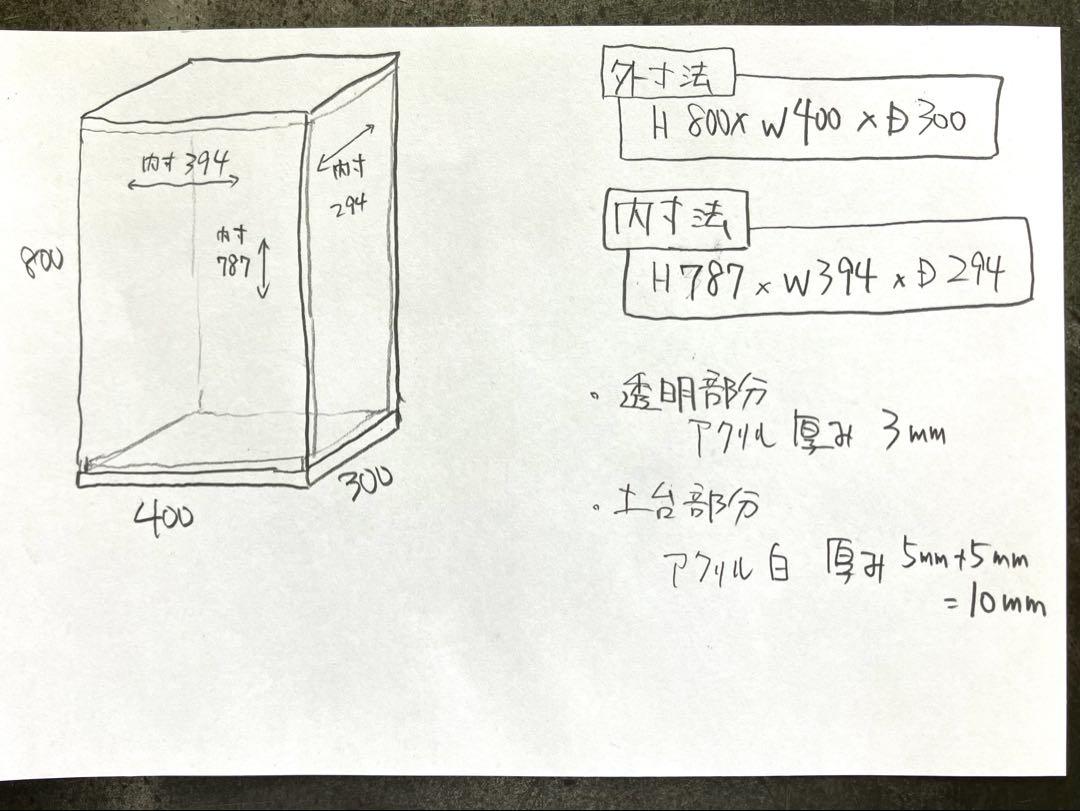 内寸394
内寸
294
内寸
787
800
400
300
外寸法
H 800 x W400 x D300
内寸法
H787 x W394 x D294
・透明部分
アクリル 厚み 3mm
・土台部分
アクリル 白 厚み 5mm+5mm
=10mm